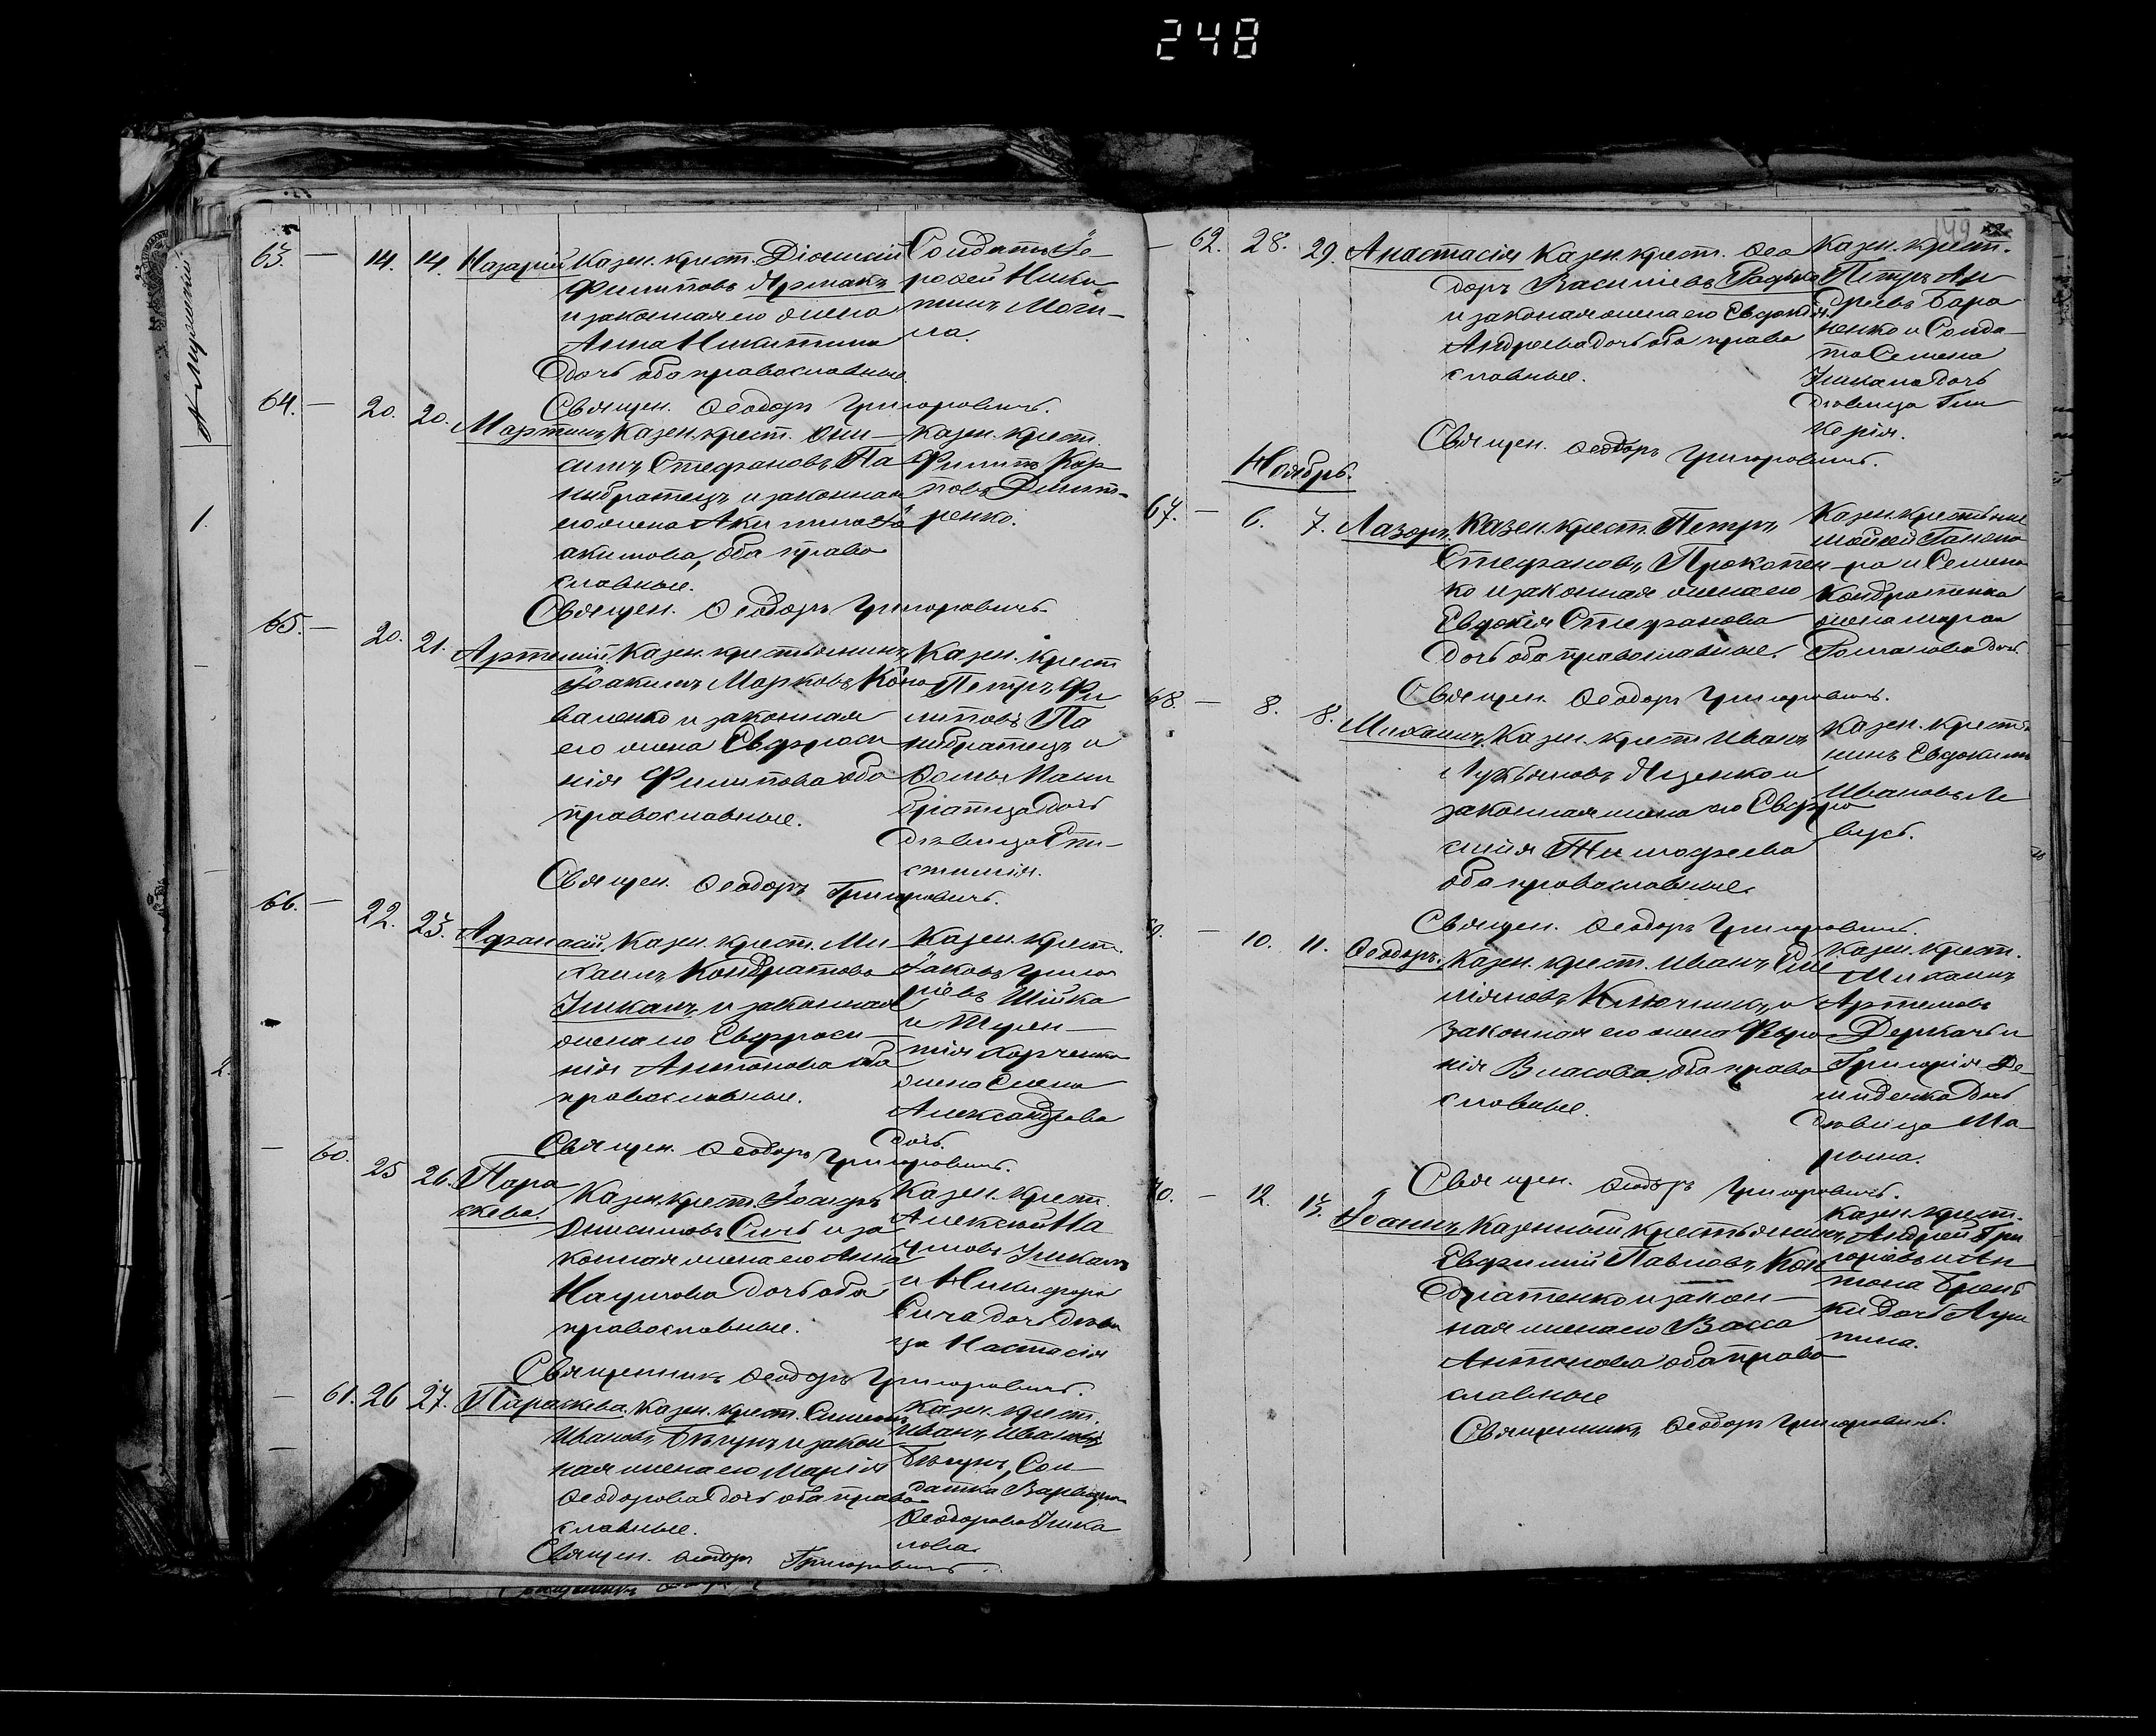 248
149
63. — 14. 14. Назарий Казен. крест. Діонисій
Филиповъ Ярмакъ
и законная его жена
Анна Никитина
дочь оба православные.
Солдатъ Іе-
рофей Ники
тинъ Моги-
ла.
Священ. Ѳеодоръ Григоровичъ.
64. — 20. 20. Мартинъ Казен. крест. Они-
симъ Стефановъ Па
нибратецъ и законная
его жена Акилина Іо
акимова, оба право
славные.
Казен. крест.
Филипъ Кар
повъ Дмит-
ренко.
Священ. Ѳеодоръ Григоровичъ.
65. — 20. 21. Артемий Казен. крестьянинъ
Іоакимъ Марковъ Коно
валенко и законная
его жена Евфроси
нія Филипова оба
православные.
Казен. крест
Петръ Фи
липовъ Па
нибратецъ и
Ѳомы Пани
братца дочь
дѣвица Епи-
стимія.
Священ. Ѳеодоръ Григоровичъ.
66. — 22. 23. Афанасій Казен. крест. Ми
хаилъ Кондратовъ
Шкаль и законная
жена его Евфроси-
нія Антонова оба
православные.
Казен. крест.
Іаковъ Григо
ріевъ Шійка
и Терен-
тія Харченка
жена Елена
Александрова
дочь.
Священ. Ѳеодоръ Григоровичъ.
— 60. 25 26. Пара
скева. Казен. крест. Іоаннъ
Онисимовъ Сичъ и за
конная жена его Анна
Наумова дочь оба
православные.
Казен. крест.
Алексѣй На
умовъ
и Никифора
Сича дочь дѣви
ца Настасія
Священникъ Ѳеодоръ Григоровичъ.
— 61. 26 27. Параскева. Казен. крест. Симеонъ
Ивановъ Бѣгунъ и закон
ная жена его Марія
Ѳеодорова дочь оба право
славные.
Казен. крест.
Иванъ Ивановъ
Бѣгунъ, Сол-
датка Варвара
Ѳеодорова
лова.
Священ. Ѳеодоръ Григоровичъ.
— 62. 28. 29. Анастасія Казен. крест. Ѳео
доръ Василіевъ Радько
и законая жена его Евдокія
Андреева дочь оба право
славные.
Казен. крест.
Петръ Ан
дреевъ Бара
ненко и Солда
та Семена
дочь
дѣвица Гли
керія.
Священ. Ѳеодоръ Григоровичъ.
Ноябрь.
67. — 6. 7. Лазорь. Казен. крест. Петръ
Стефановъ Прокопен
ко и законная жена его
Евдокія Стефанова
дочь оба православные.
ра и Семена
Кондратенка
жена
Романова дочь.
Священ. Ѳеодоръ Григоровичъ.
68. — 8. 8. Михаилъ. Казен. крест. Иванъ
Лукьяновъ Яценко и
законная жена его Евфро
синія Тимофеева
оба православные.
Казен. крестья
нинъ Евдокимъ
Ивановъ Ле
вусь.
Священ. Ѳеодоръ Григоровичъ.
69. — 10. 11. Ѳеодоръ. Казен. крест. Иванъ Еме
ліяновъ Ключникъ и
законная его жена Февро
нія Власова оба право
славные.
Казен. крест.
Михаилъ
Артемовъ
Деркачь и
Григорія Де-
миденка дочь
дѣвица Ма
рина.
Священ. Ѳеодоръ Григоровичъ.
70. — 12. 13. Іоаннъ. Казенный крестьянинъ
Евфимій Павловъ Кон
дратенко и закон-
ная жена его Васса
Антонова оба право
славные
Казен. крест.
Андрей Гри
горіевъ и Ан
тона
ки дочь
Священникъ Ѳеодоръ Григоровичъ.